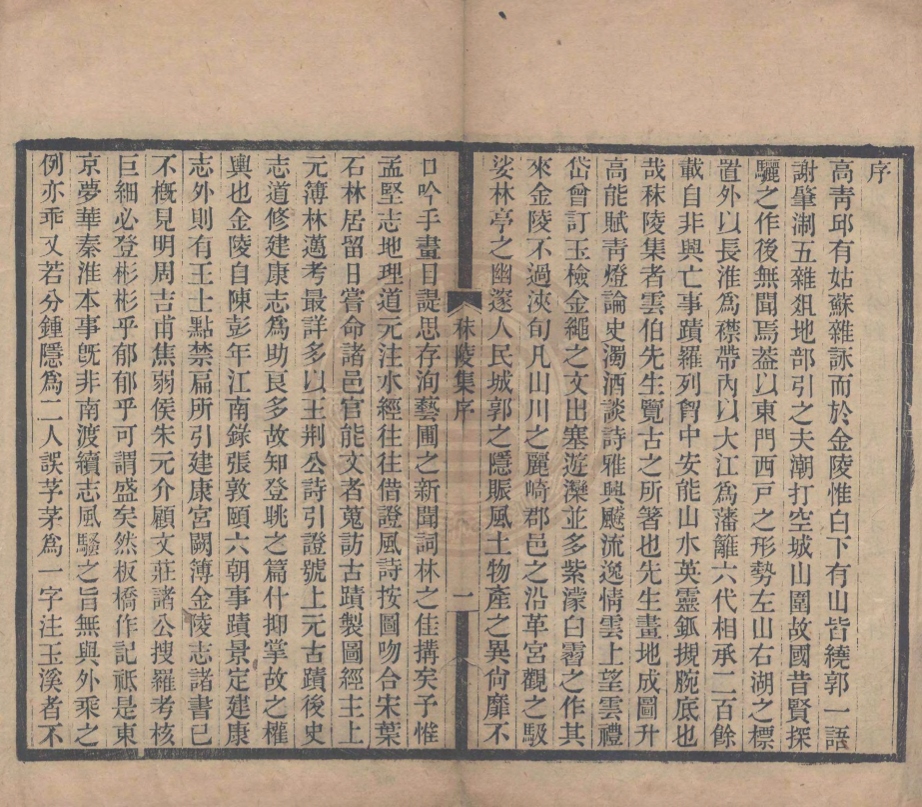 序
高靑邱有姑蘇雜詠而於金陵惟白下有山皆繞郭一語
謝肇淛五雜俎地部引之夫潮打空城山圍故國昔賢探
驪之作後無聞焉葢以東門西戸之形勢左山右湖之標
置外以長淮爲襟帶內以大江爲藩籬六代相承二百餘
載自非興亡事蹟羅列胷中安能山水英靈鉱摫腕底也
哉秣陵集者雲伯先生覽古之所箸也先生畫地成圖升
高能賦靑燈論史濁酒談詩雅興飈流逸情雲上望雲禮
岱曾訂玉檢金繩之文出塞遊灤並多紫濛白霫之作其
來金陵不過浹旬凡山川之麗崎郡邑之沿革宮觀之馺
娑林亭之幽邃人民城郭之隱賑風土物產之異尙靡不
秣陵集序
一
口吟手畫目諟思存洵藝圃之新聞詞林之佳搆矣予惟
孟堅志地理道元注水經往往借證風詩按圖吻合宋葉
石林居留日嘗命諸邑官能文者蒐訪古蹟製圖經王上
元簿林邁考最詳多以王荆公詩引證號上元古蹟後史
志道修建康志爲助良多故知登眺之篇什抑掌故之權
輿也金陵自陳彭年江南錄張敦頤六朝事蹟景定建康
志外則有王士點禁扁所引建康宮闕簿金陵志諸書已
不槪見明周吉甫焦弱侯朱元介顧文莊諸公搜羅考核
巨細必登彬彬乎郁郁乎可謂盛矣然板橋作記祇是東
京夢華秦淮本事旣非南渡續志風騷之旨無與外乘之
例亦乖又若分鍾隱爲二人誤芧茅爲一字注玉溪者不